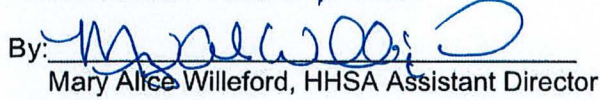 By:
Mary Alice Willeford, HHSA Assistant Director